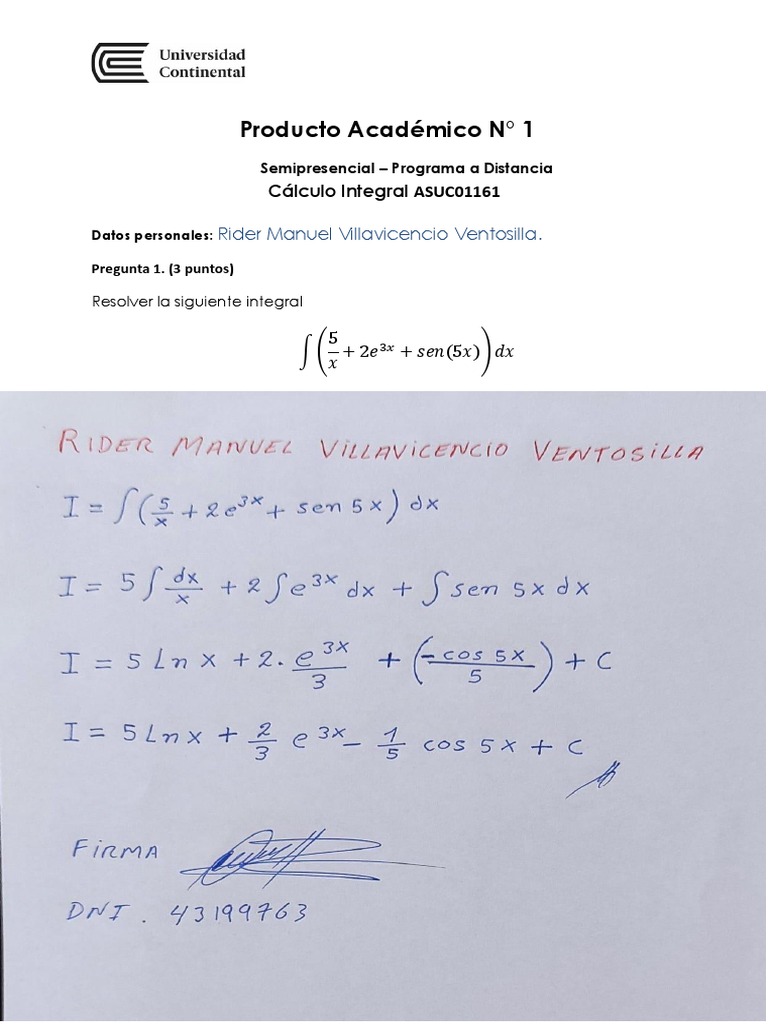 Universidad
Continental
Producto Académico N° 1
Semipresencial – Programa a Distancia
Cálculo Integral ASUC01161
Datos personales: Rider Manuel Villavicencio Ventosilla.
Pregunta 1. (3 puntos)
Resolver la siguiente integral
∫(5/x + 2e^{3x} + sen(5x))dx
RIDER MANUEL VILLAVICENCIO VENTOSILLA
I = ∫(5/x + 2e^{3x} + sen 5x) dx
I = 5∫dx/x + 2∫e^{3x} dx + ∫sen 5x dx
I = 5 Ln x + 2. e^{3x}/3 + (-cos 5x/5) + C
I = 5 Ln x + 2/3 e^{3x} - 1/5 cos 5x + C
FIRMA
DNI. 43199763